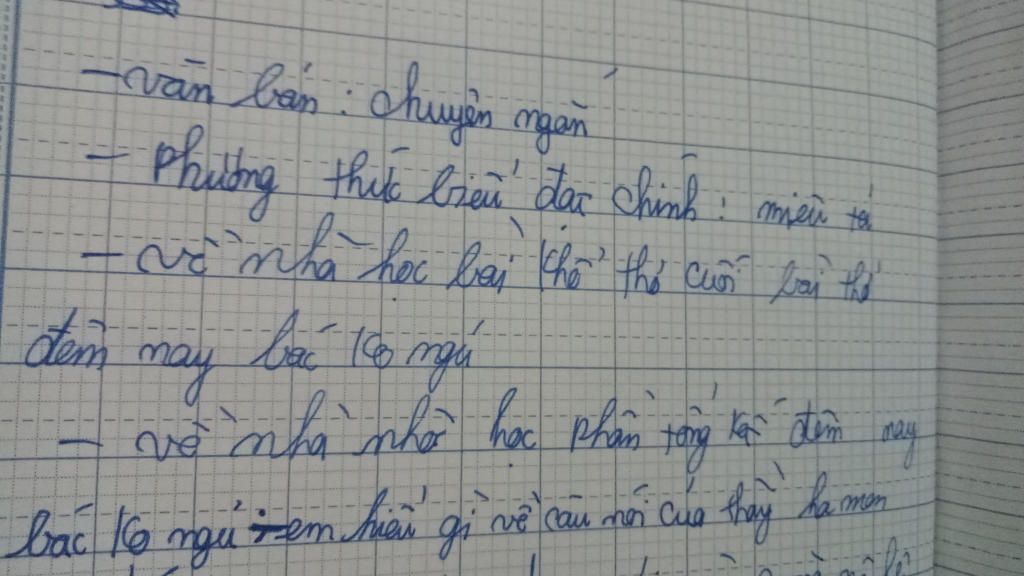 - văn bản: chuyện ngắn
- Phương thức biểu đạt chính: miêu tả
- về nhà học bài khổ thơ cuối bài thơ
đêm nay bác ko ngủ
- về nhà nhớ học phần tổng kết đêm nay
bác ko ngủ - em hiểu gì về câu nói của thầy ha men